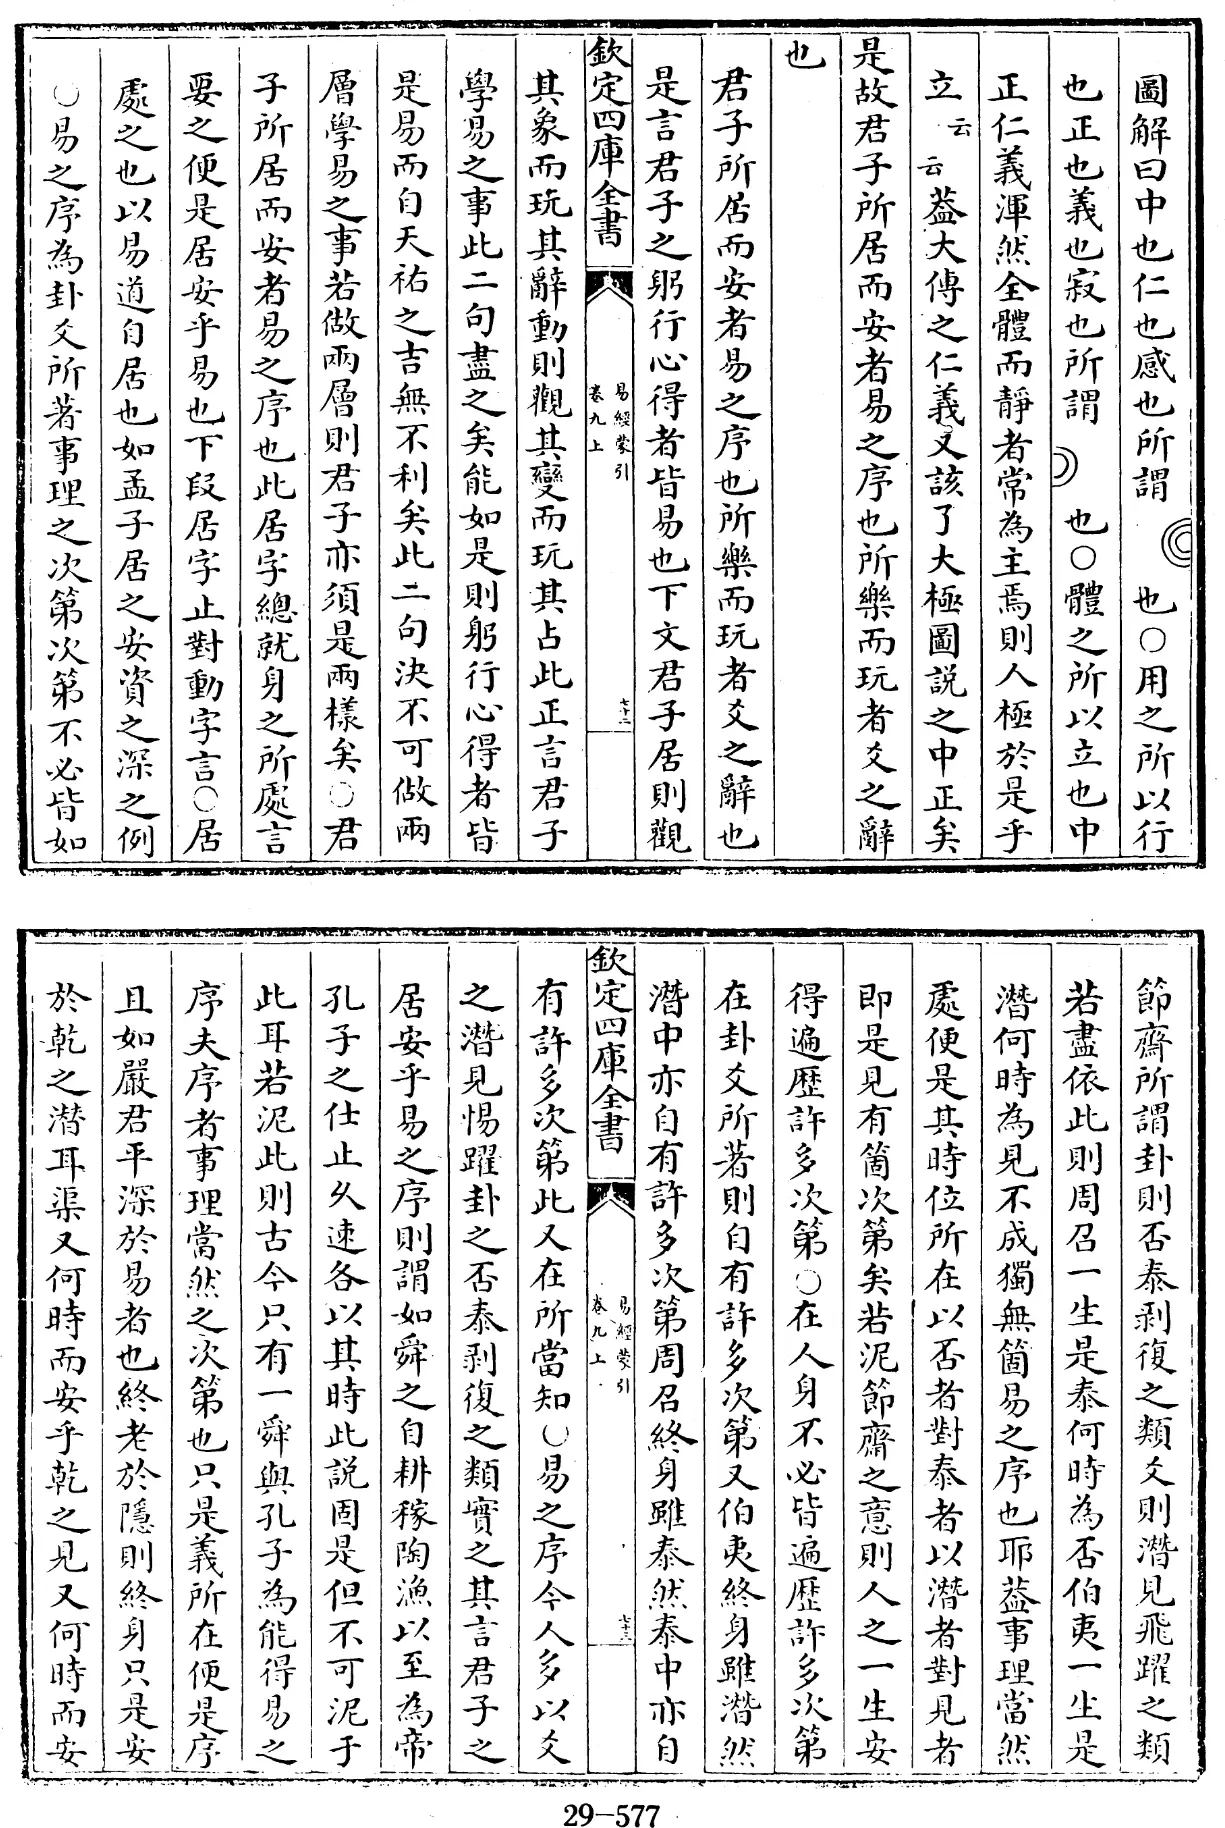 圖解曰中也仁也感也所謂◎也○用之所以行
也正也義也寂也所謂☽也○體之所以立也中
正仁義渾然全體而靜者常為主焉則人極於是乎
立云云葢大傳之仁義又該了大極圖説之中正矣
是故君子所居而安者易之序也所樂而玩者爻之辭
也
君子所居而安者易之序也所樂而玩者爻之辭也
是言君子之躬行心得者皆易也下文君子居則觀
欽定四庫全書
易經蒙引
卷九上
七十二
其象而玩其辭動則觀其變而玩其占此正言君子
學易之事此二句盡之矣能如是則躬行心得者皆
是易而自天祐之吉無不利矣此二句決不可做兩
層學易之事若做兩層則君子亦須是兩樣矣○君
子所居而安者易之序也此居字總就身之所處言
要之便是居安乎易也下段居字止對動字言○居
處之也以易道自居也如孟子居之安資之深之例
○易之序為卦爻所著事理之次第次第不必皆如
節齋所謂卦則否泰剥復之類爻則潛見飛躍之類
若盡依此則周召一生是泰何時為否伯夷一生是
潛何時為見不成獨無箇易之序也耶葢事理當然
處便是其時位所在以否者對泰者以潛者對見者
即是見有箇次第矣若泥節齋之意則人之一生安
得遍歷許多次第○在人身不必皆遍歷許多次第
在卦爻所著則自有許多次第又伯夷終身雖潛然
潛中亦自有許多次第周召終身雖泰然泰中亦自
欽定四庫全書
易經蒙引
卷九上
七十三
有許多次第此又在所當知○易之序今人多以爻
之潛見惕躍卦之否泰剥復之類實之其言君子之
居安乎易之序則謂如舜之自耕稼陶漁以至為帝
孔子之仕止久速各以其時此説固是但不可泥于
此耳若泥此則古今只有一舜與孔子為能得易之
序夫序者事理當然之次第也只是義所在便是序
且如嚴君平深於易者也終老於隱則終身只是安
於乾之潛耳渠又何時而安乎乾之見又何時而安
29-577